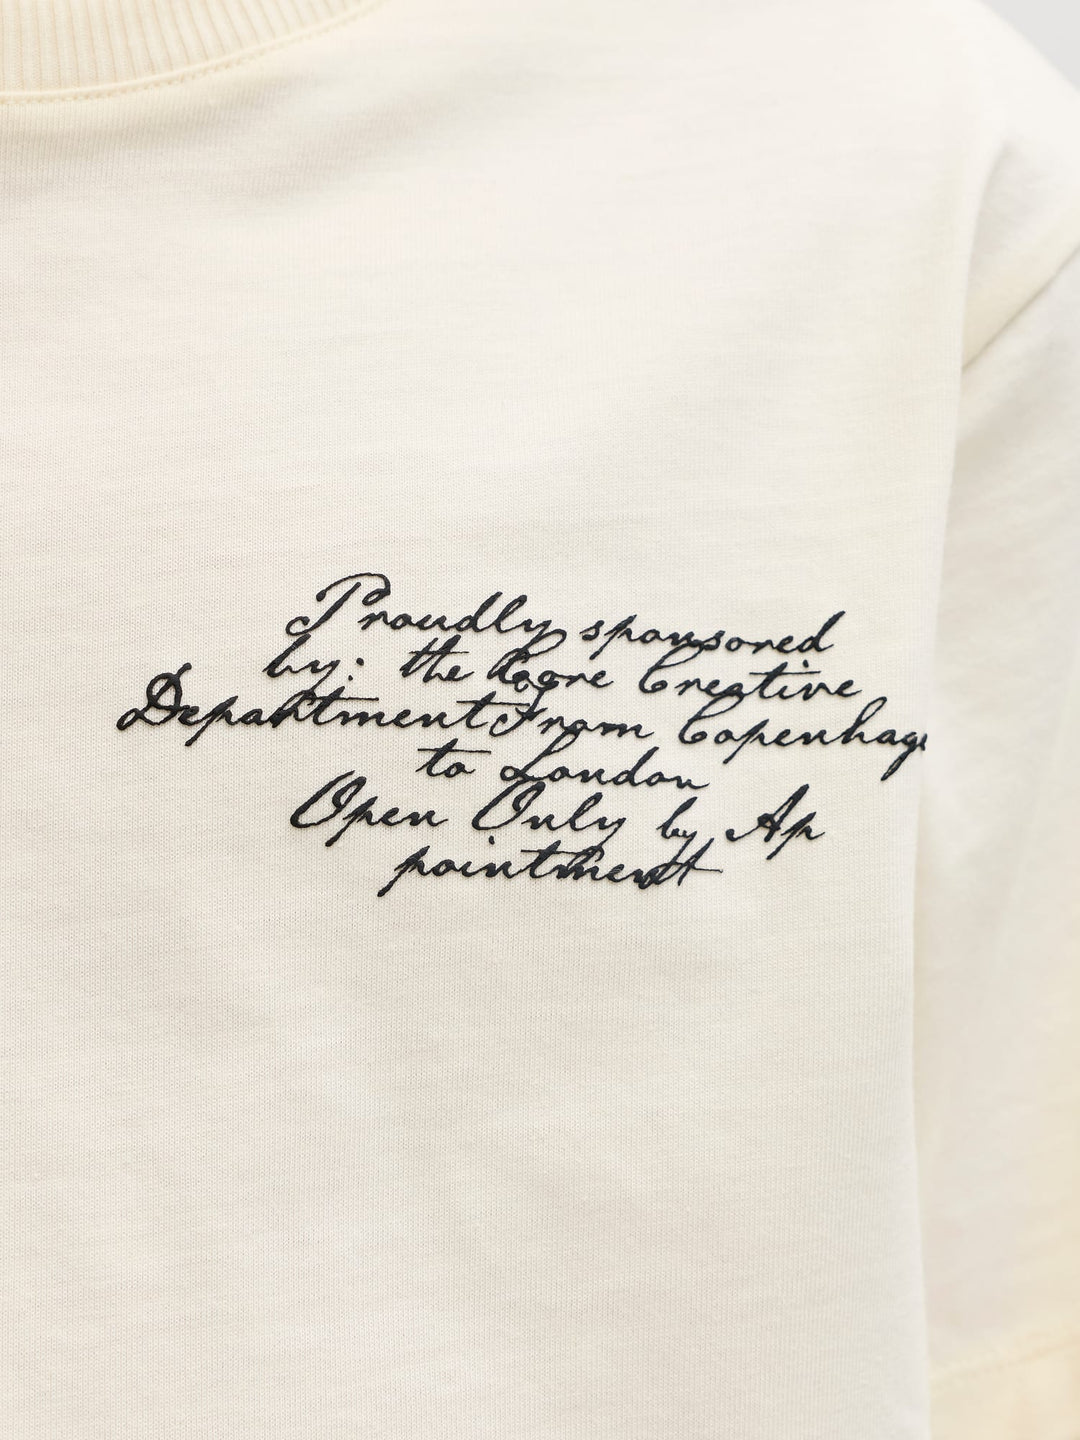 Proudly sponsored
by: the Core Creative
Department From Copenhag
to London
Open Only by Ap
pointment